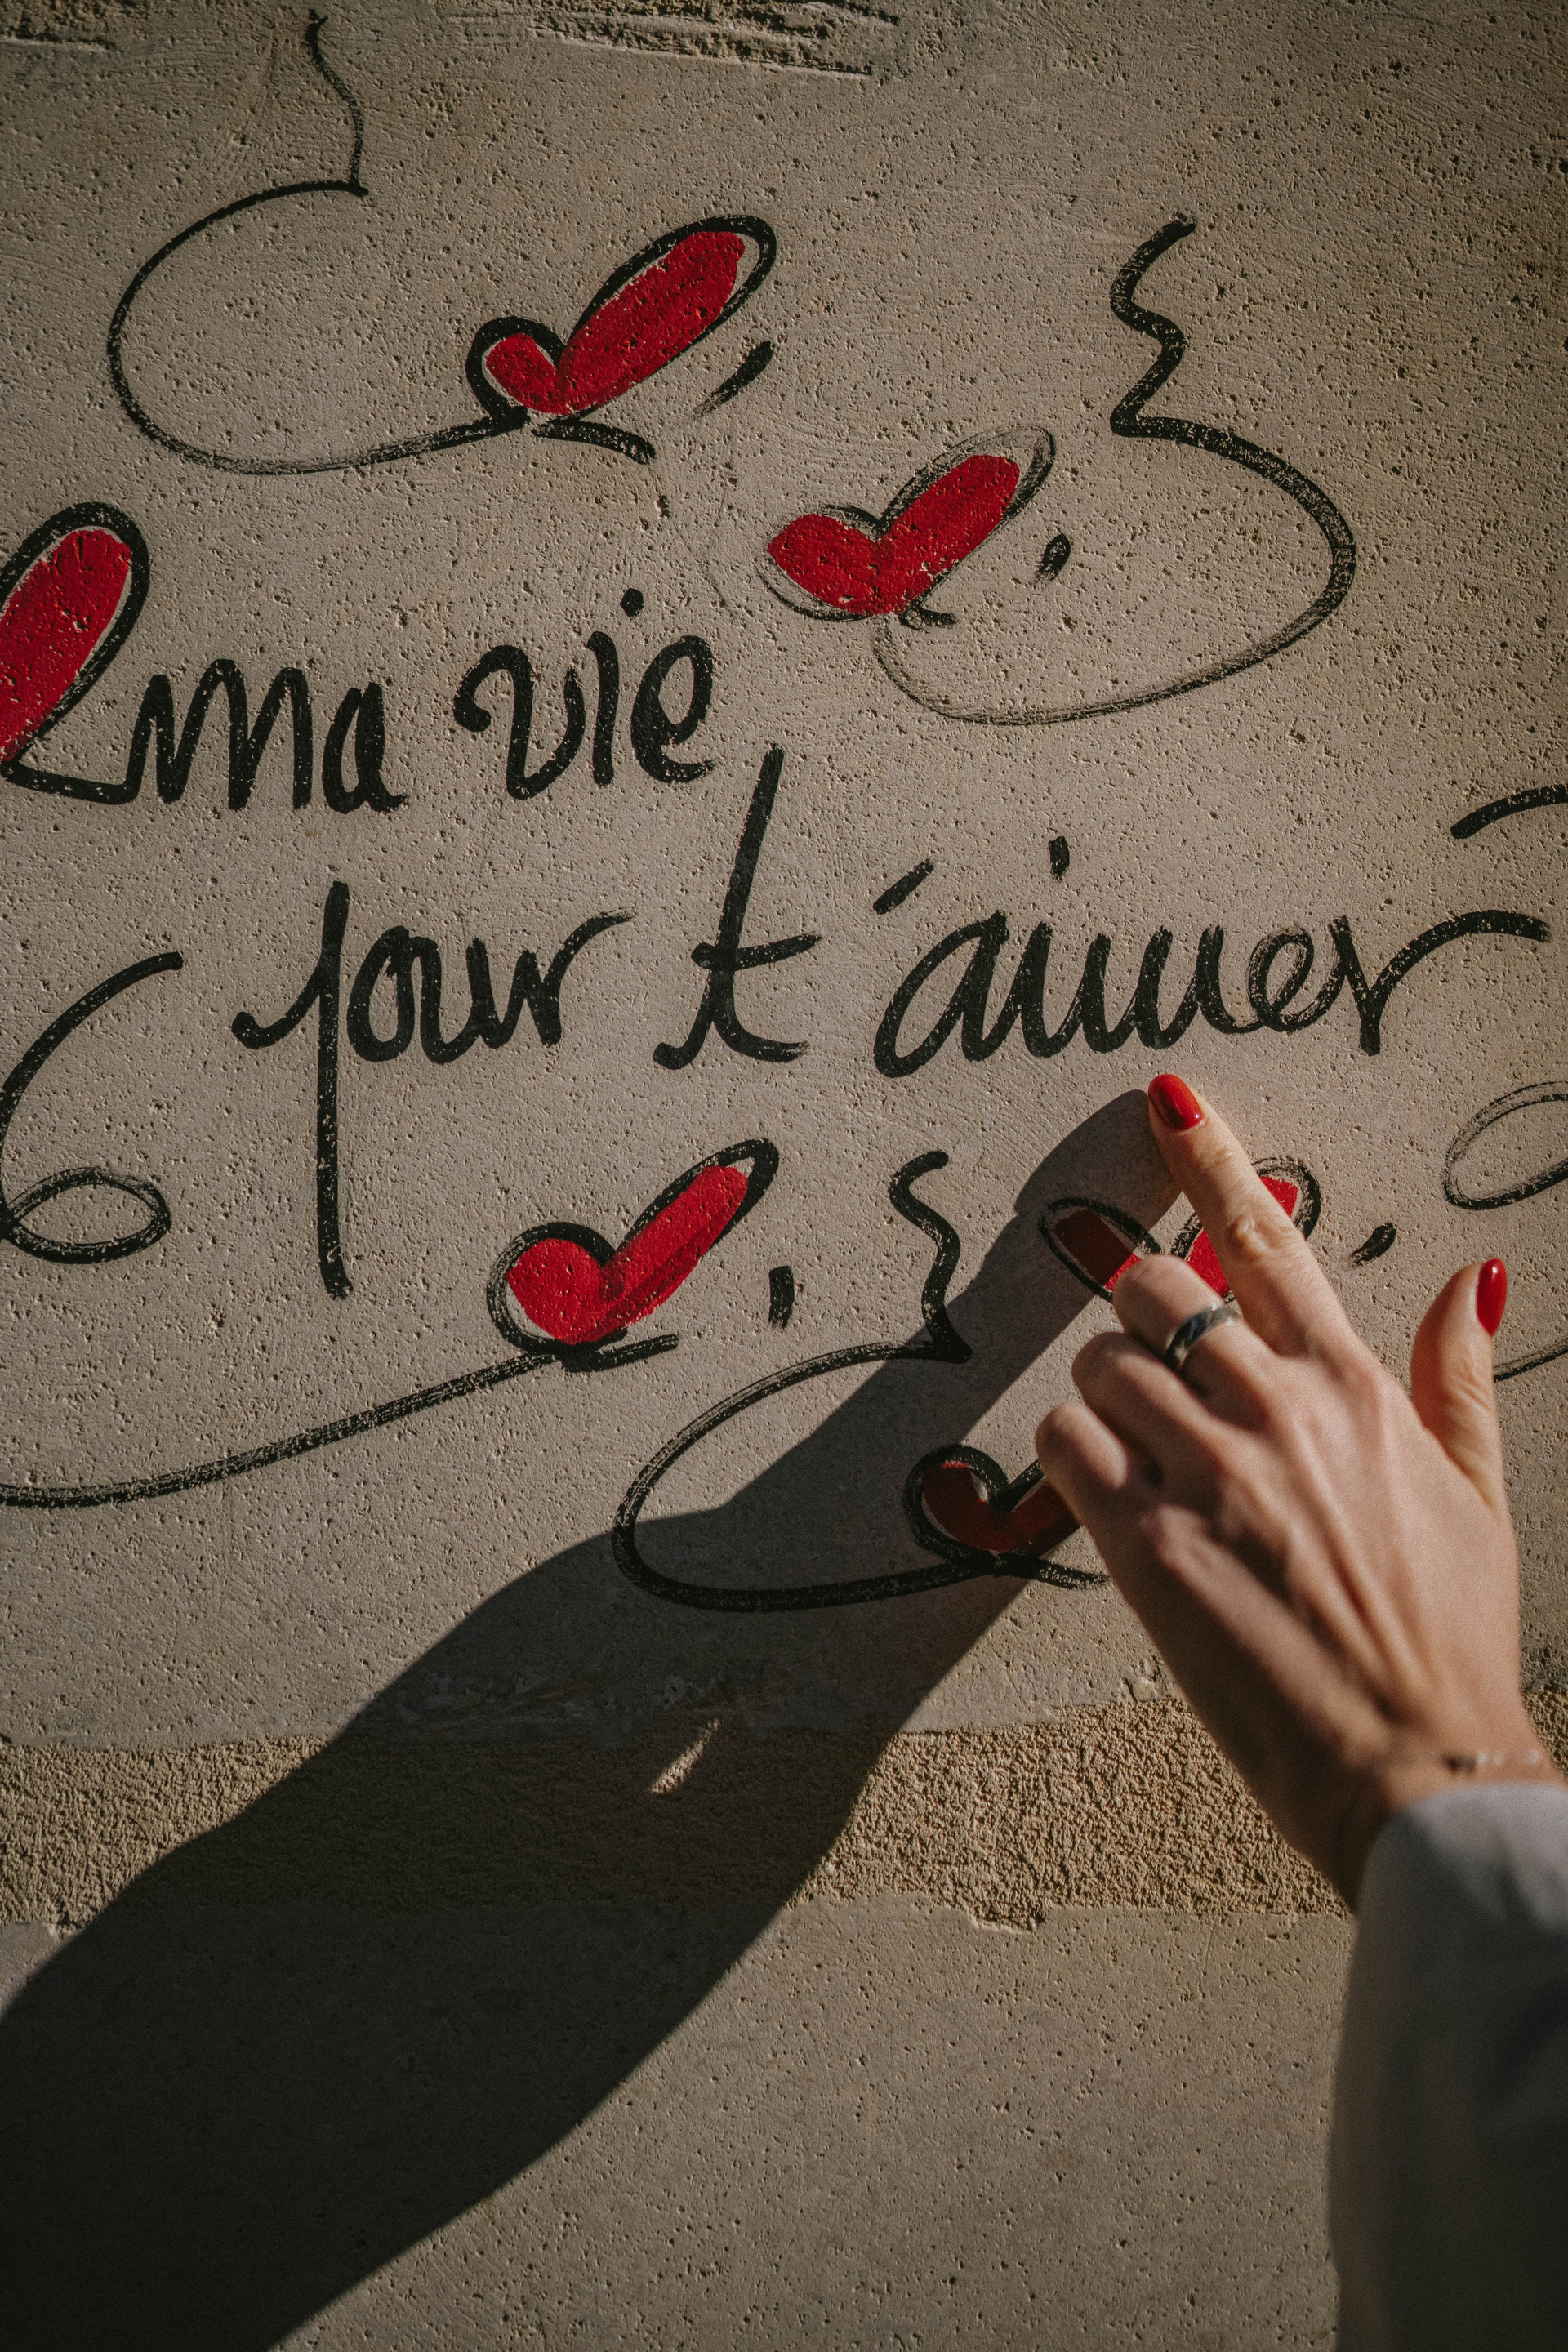 ma vie
pour t'aimer